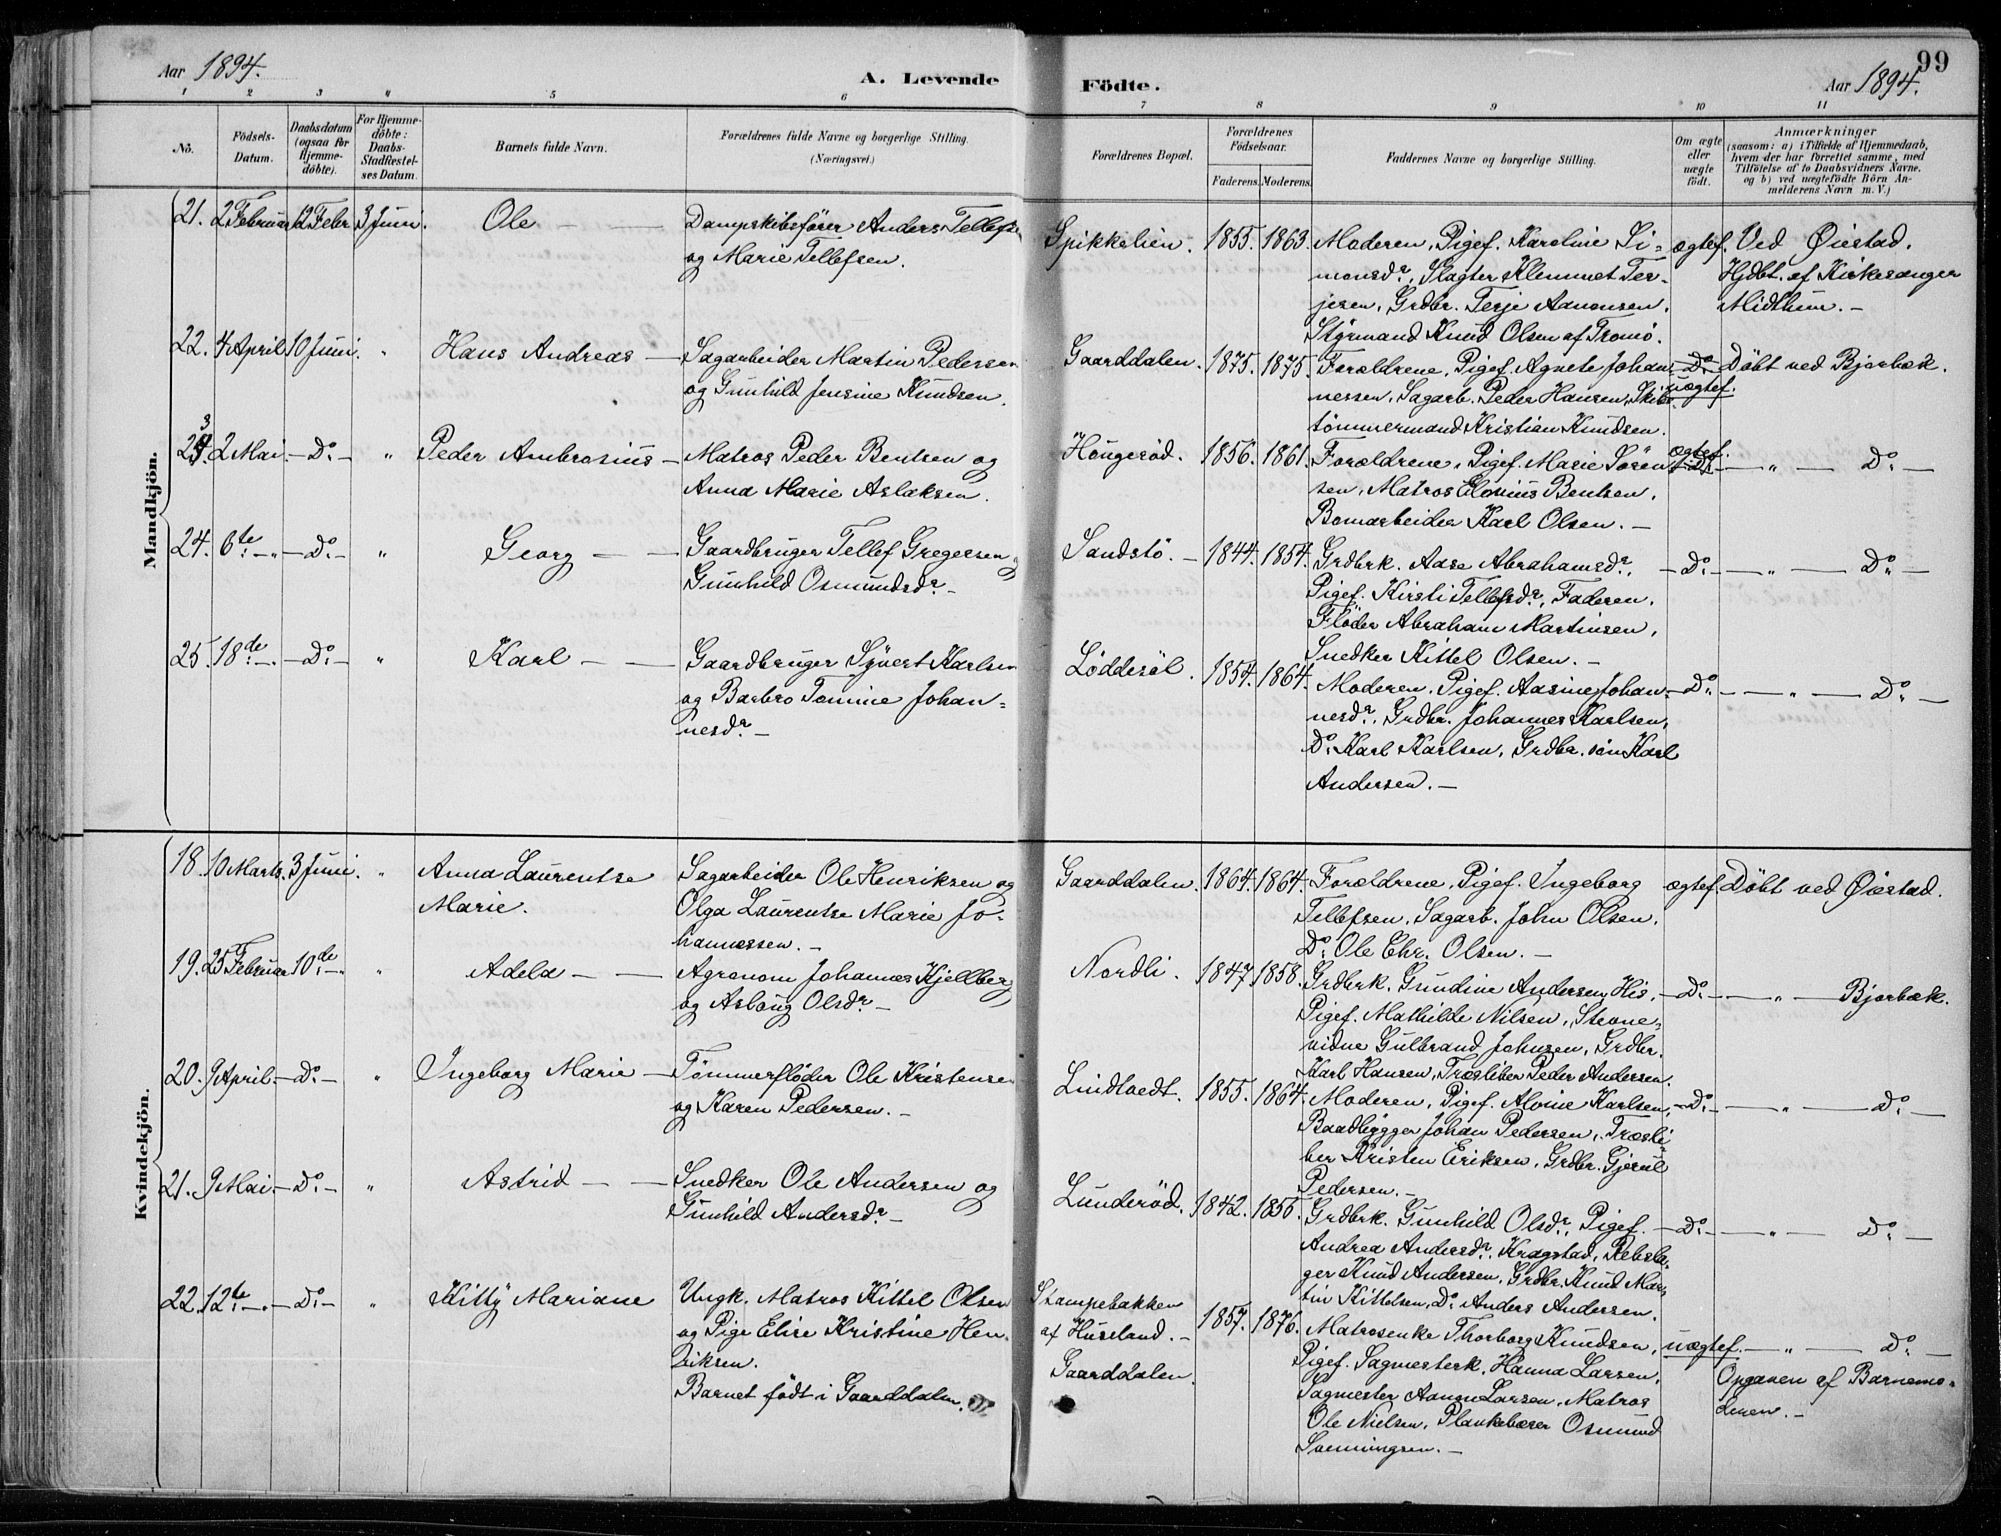 99
Aar 1894. A. Levende Födte. Aar 1894.
1 2 3 " 5 6 7 8 9 10 11
No. Födsels-Datum. Daabsdatum (ogsaa for Hjemme-döbte). For Hjemme-döbte: Daabs-Stadfæstel-ses Datum. Barnets fulde Navn. Forældrenes fulde Navne og borgerlige Stilling. (Næringsvei.) Forældrenes Bopæl. Forældrenes Födselsaar. Faderens. Moderens. Faddernes Navne og borgerlige Stilling. Om ægte eller uægte födt. Anmærkninger (saasom: a) i Tilfælde af Hjemmedaab, hvem der har forrettet samme, med Tilföielse af to Daabsvidners Navne. og b) ved uægtefödte Börn An-melderens Navn m. V.)
Mandkjön.
21. 2 Februar 12 Febr. 3 Juni. Ole — — Dampskibsfører Anders Tellefsen
og Marie Tellefsen.
Spikkelien. 1855. 1863. Moderen, Pigef. Karoline Si-
monsdr., Slagter Klemmet Ter-
jesen, Grdbr. Terje Aanonsen,
Styrmand Knud Olsen af Tromö.
ægtef. Ved Øiestad.
Hjdbt. af Kirkesanger
Midthun. —
22. 4 April 10 Juni. " Hans Andreas — Sagarbeider Martin Pedersen
og Gunhild Jensine Knudsen.
Gaarddalen. 1875. 1875. Forældrene, Pigef. Agnete Johan-
nessen, Sagarb. Peder Hansen, Skibs-
tømmermand Kristian Knudsen.
— Do —
uægtef.
Döbt ved Bjorbæk.
23. 2 Mai. — Do — " Peder Ambrosius — Matros Peder Bentsen og
Anna Marie Aslaksen.
Hougeröd. 1856. 1861. Forældrene, Pigef. Marie Sören-
sen, Matros Bentsen,
Bomarbeider Karl Olsen. —
ægtef.
— " — Do —
24. 6te — " — Do — " Georg — — Gaardbruger Tellef Gregersen og
Gunhild Osmundsdr. —
Sandstö. — 1844. 1854. Grdbrk. Aase Abrahamsdr.,
Pigef. Kirsti Tellefsdr., Faderen,
Flöder Abraham Martinsen,
Snedker Kittel Olsen. —
— Do — — " — Do —
25. 18de — . — Do — " Karl — — Gaardbruger Syvert Karlsen
og Barbro Tomine Johan-
nesdr. —
Løddesøl. 1854. 1864. Moderen, Pigef. Aasine Johan-
nesdr., Grdbr. Johannes Karlsen,
Do Karl Karlsen, Grdbr. sön Karl
Andersen. —
— Do — — " — Do —
Kvindekjön.
18. 10 Marts. 3 Juni. " Anna Laurentse
Marie.
Sagarbeider Ole Henriksen og
Olga Laurentse Marie Jo-
hannessen. —
Gaarddalen. 1864. 1864. Forældrene, Pigef. Ingeborg
Tellefsen, Sagarb. John Olsen,
Do Ole Chr. Olsen. —
ægtef. Döbt ved Øiestad.
19. 25 Februar 10de — " Adela — — Agronom Johannes Kjellberg
og Asborg Olsdr. —
Nordli. 1847. 1858. Grdbrk. Gundine Andersen, His,
Pigef. Mathilde Nilsen, Stevne-
vidne Gulbrand Johnsen, Grdbr.
Karl Hansen, Træsliber Peder Andersen.
— Do — — " — Bjorbæk.
20. 9 April. — Do — " Ingeborg Marie — Tömmerflöder Ole Kristensen
og Karen Pedersen. —
Lindtvedt. 1855. 1864. Moderen, Pigef. Alvine Karlsen,
Baadbygger Johan Pedersen, Træsli-
ber Kristen Eriksen, Grdbr. Gjerul
Pedersen. —
— Do — — " — Do —
21. 9 Mai. — Do — " Astrid — — Snedker Ole Andersen og
Gunhild Andersdr. —
Lunderöd. 1842. 1856. Grdbrk. Gunhild Olsdr., Pigef.
Andrea Andersdr. Kragstad, Rebsla-
ger Knud Andersen, Grdbr. Knud Mar-
tin Kittelsen, Do Anders Andersen.
— Do — — " — Do —
22. 12te — " — Do — " Kitty Mariane Ungk. Matros Kittel Olsen
og Pige Elise Kristine Hen-
riksen.
Barnet födt i Gaarddalen.
Stampebakken
af Huseland. —
Gaarddalen.
1857. 1876. Matrosenke Thorborg Knudsen,
Pigef. Sagmesterk. Hanna Larsen,
Sagmester Aanon Larsen, Matros
Ole Nielsen, Plankebærer Osmund
Svenningsen. —
uægtef. — " — Do —
Opgaven af Barnemo-
deren. —